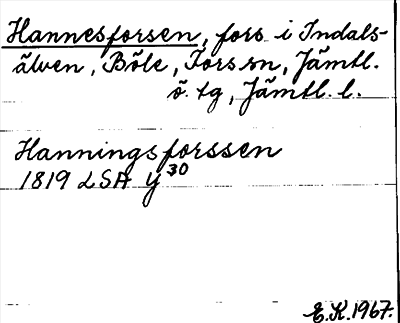 Hannesforsen, fors i Indals-
älven, Böle, Fors sn, Jämtl.
ö. tg, Jämtl. l.
Hanningsforssen
1819 LSA Y30
E.K. 1967.